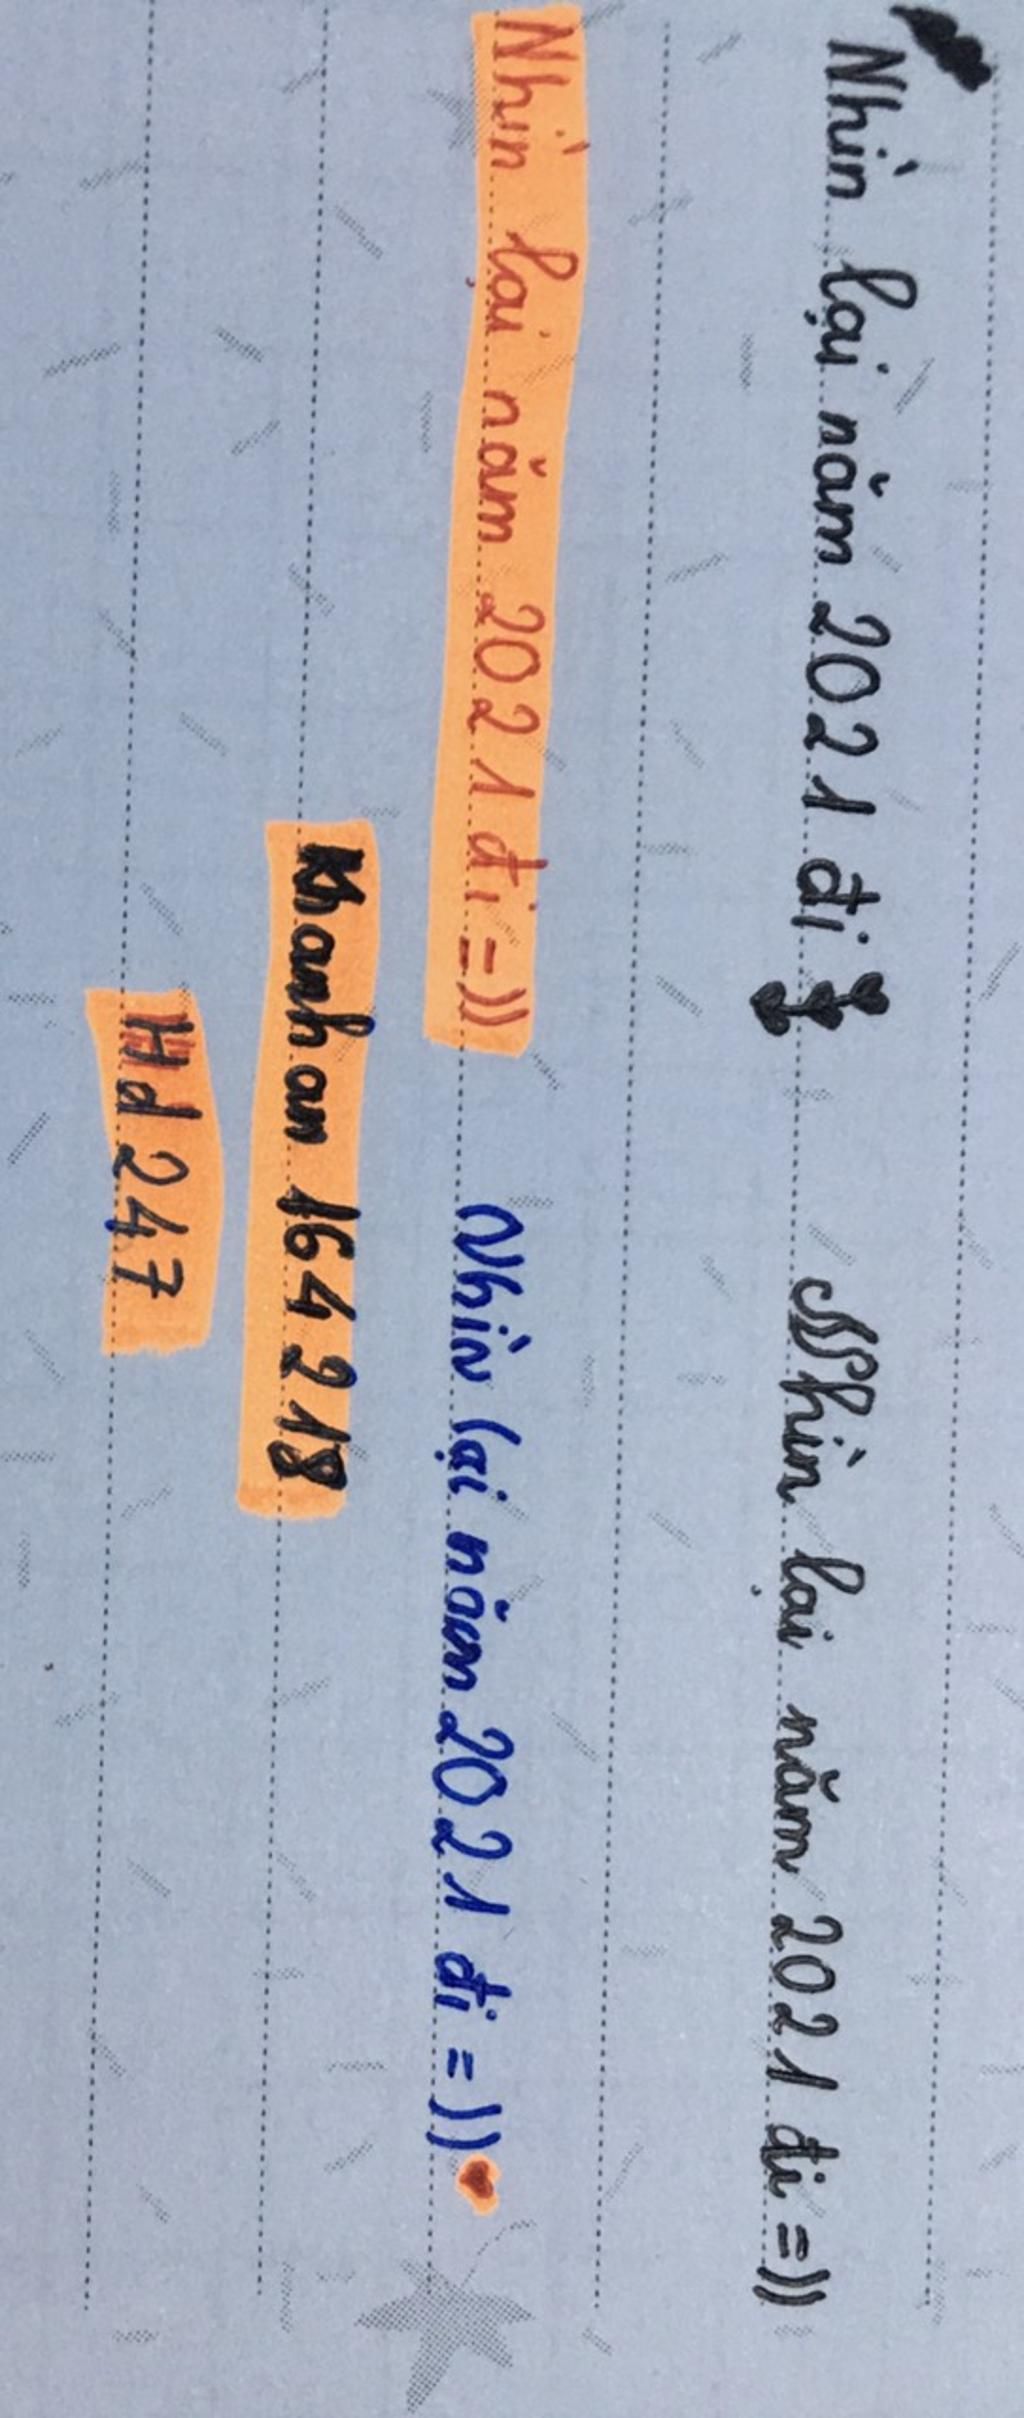 Nhìn lại năm 2021 đi Nhìn lại năm 2021 đi =))
Nhìn lại năm 2021 đi =)) Nhìn lại năm 2021 đi =))
Khanhan 164218
Hd 247